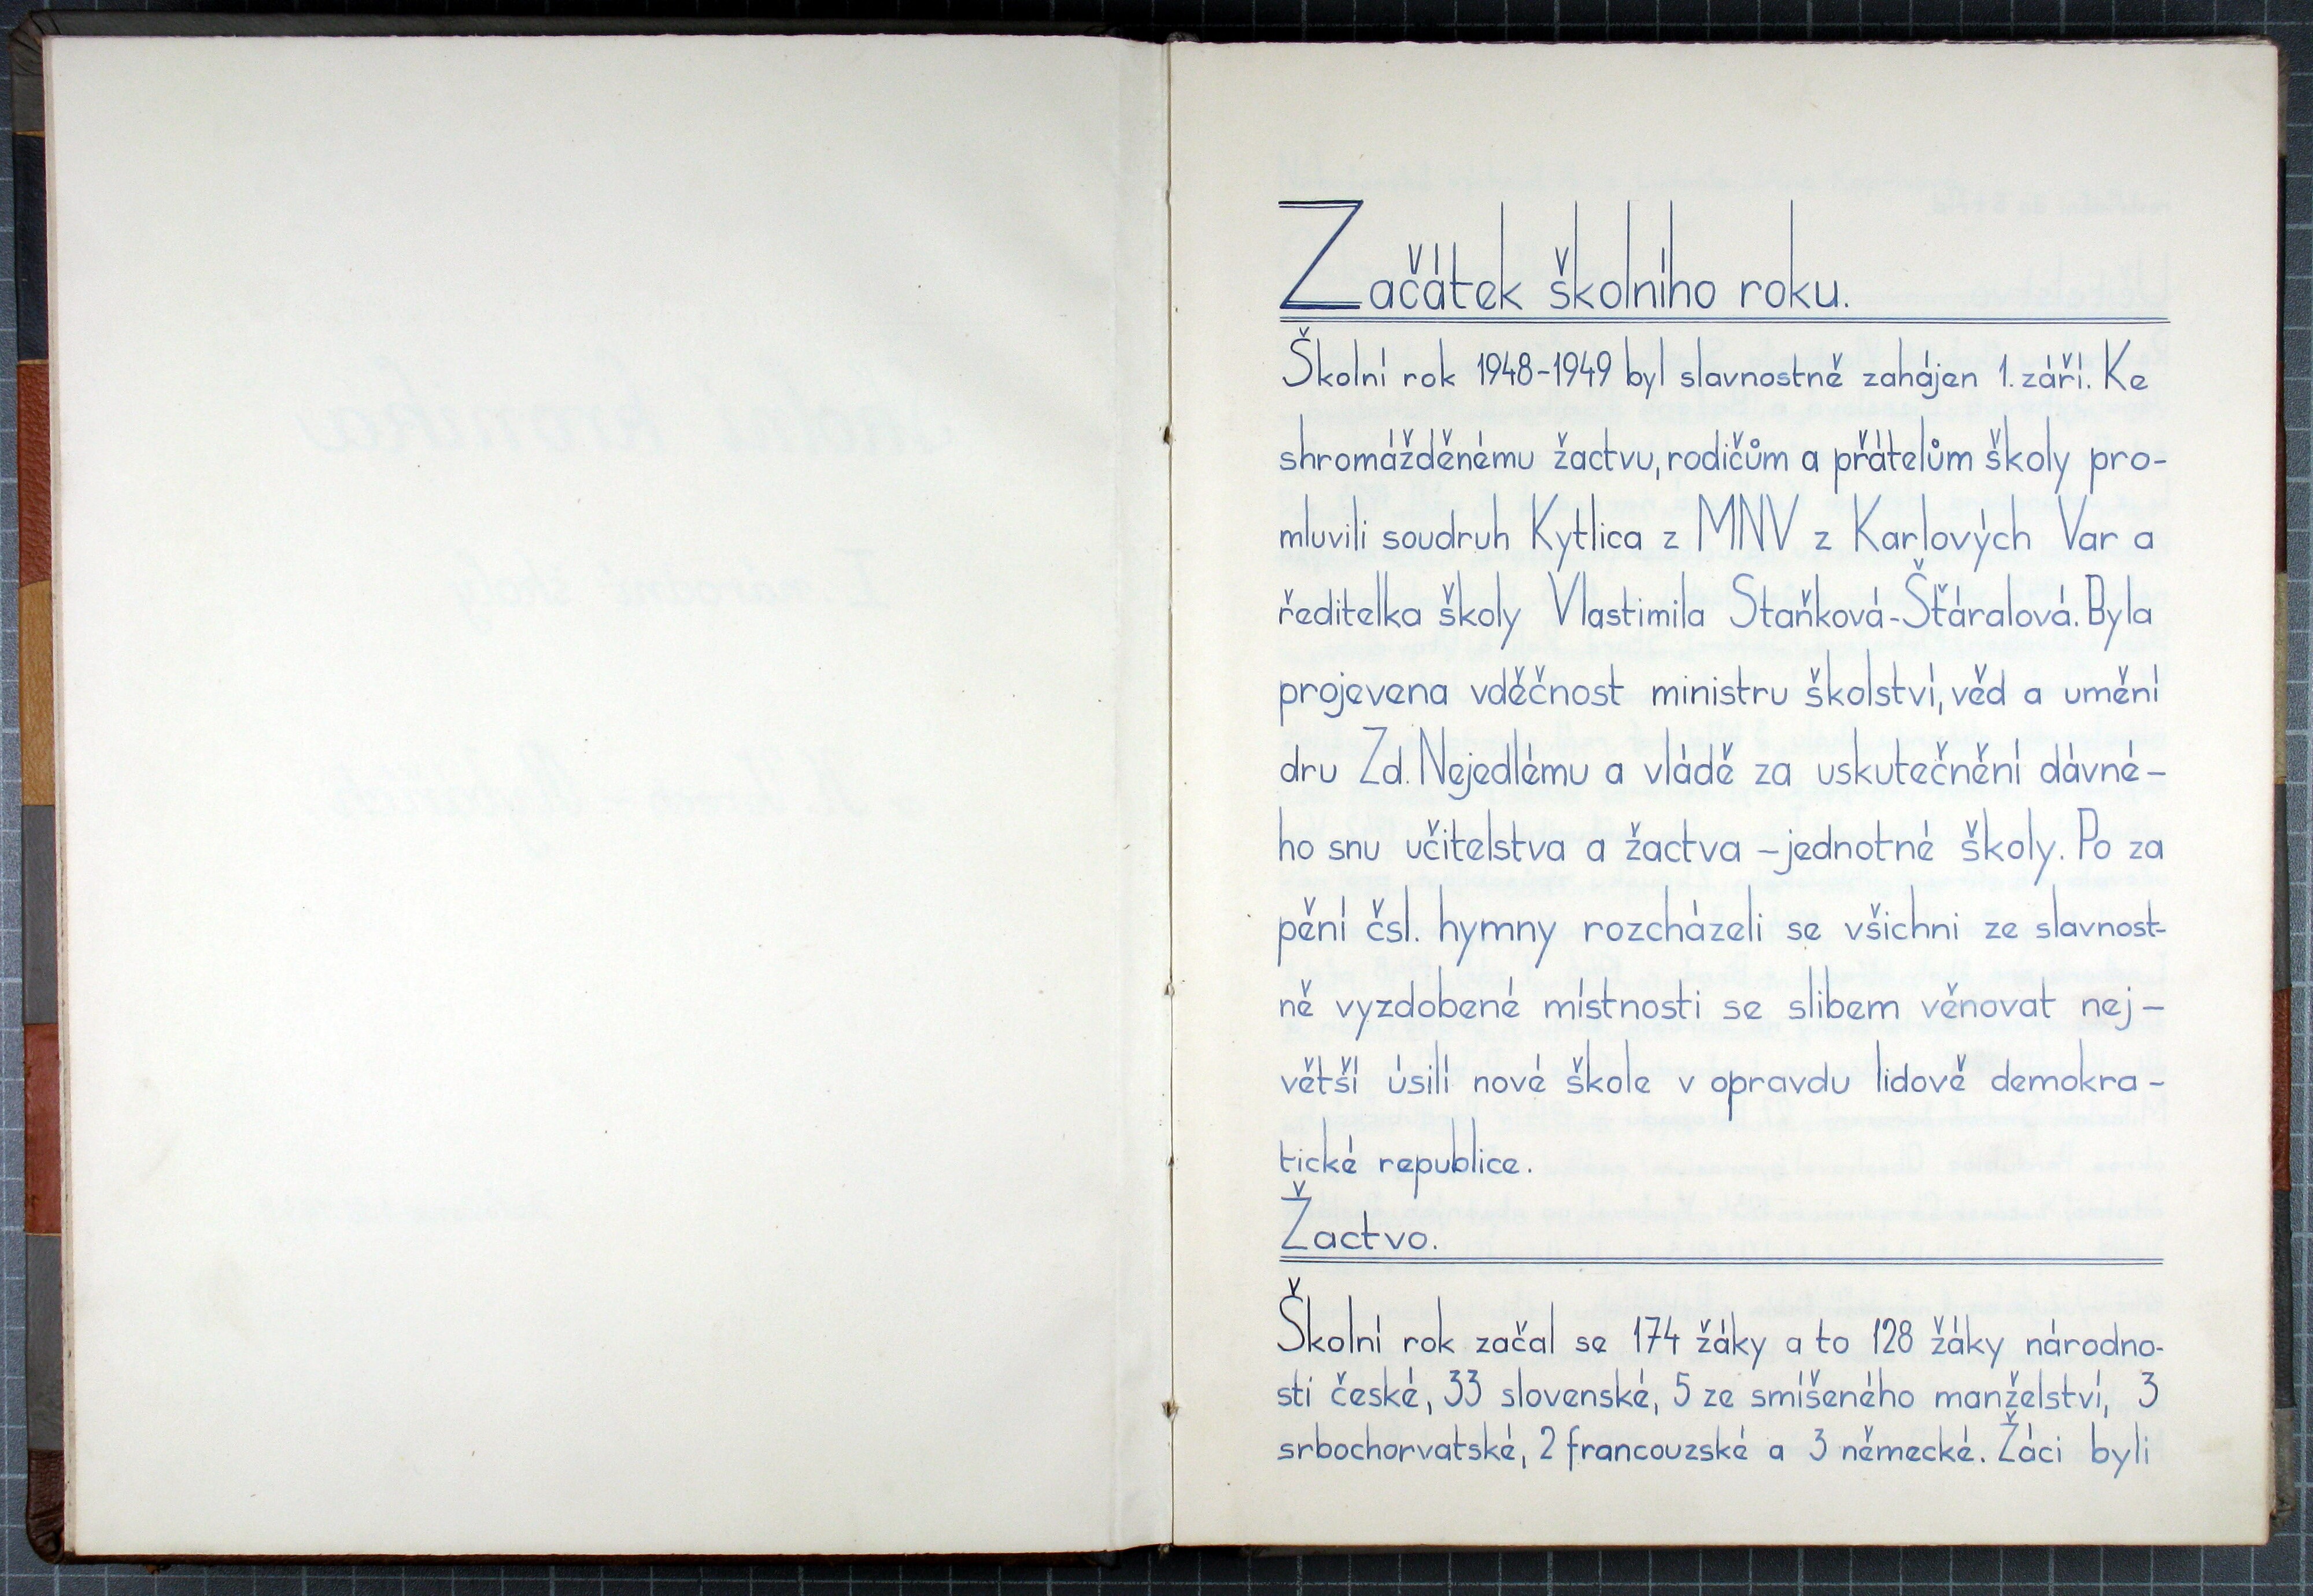 Začátek školního roku.
Školní rok 1948-1949 byl slavnostně zahájen 1. září. Ke
shromážděnému žactvu, rodičům a přátelům školy pro-
mluvili soudruh Kytlica z MNV z Karlových Var a
ředitelka školy Vlastimila Staňková-Šťáralová. Byla
projevena vděčnost ministru školství, věd a umění
dru Zd. Nejedlému a vládě za uskutečnění dávné-
ho snu učitelstva a žactva – jednotné školy. Po za
pění čsl. hymny rozcházeli se všichni ze slavnost-
ně vyzdobené místnosti se slibem věnovat nej-
větší úsilí nové škole v opravdu lidově demokra-
tické republice.
Žactvo.
Školní rok začal se 174 žáky a to 128 žáky národno-
sti české, 33 slovenské, 5 ze smíšeného manželství, 3
srbochorvatské, 2 francouzské a 3 německé. Žáci byli